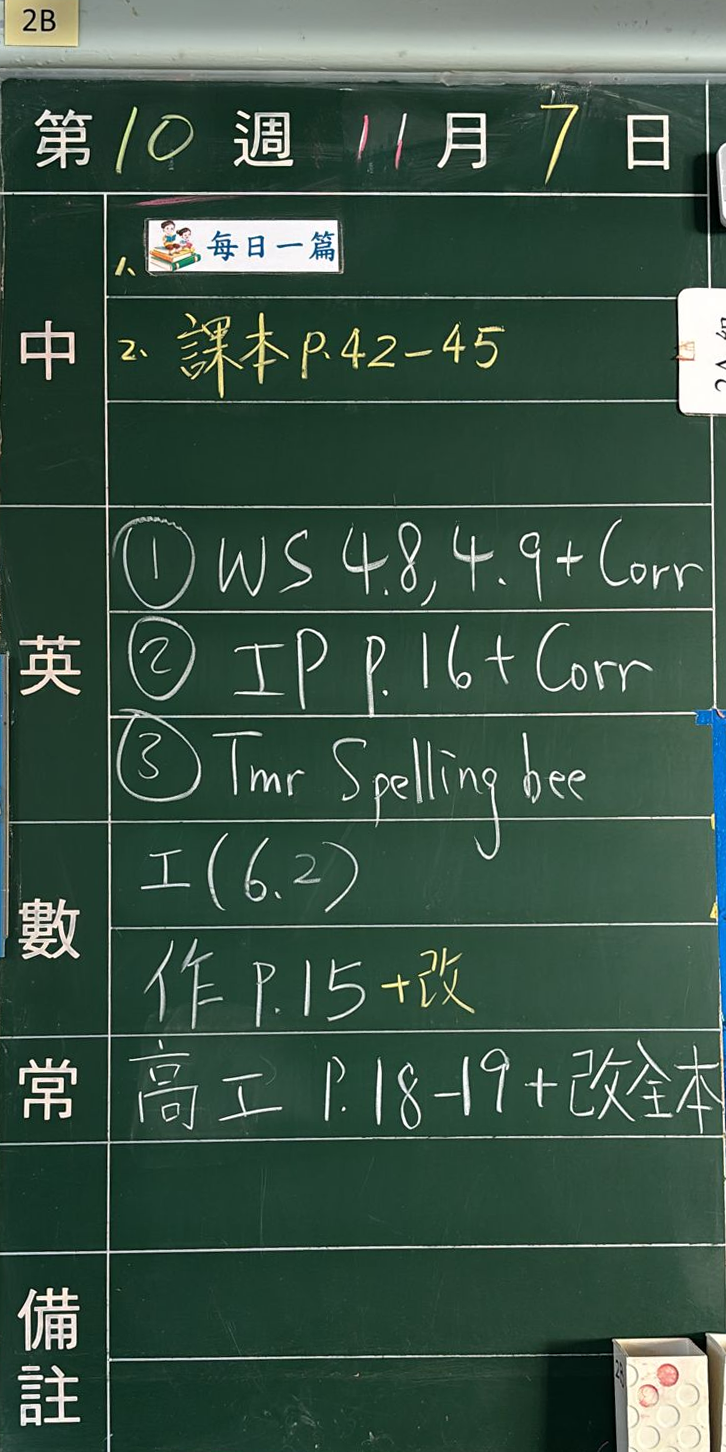 2B
第 10 週 11 月 7 日
中
1. 每日一篇
2. 課本 P.42-45
英
① WS 4.8, 4.9 + Corr
② IP P.16 + Corr
③ Tmr Spelling bee
數
工(6.2)
作 P.15 +改
常
高工 P.18-19 + 改全本
備註